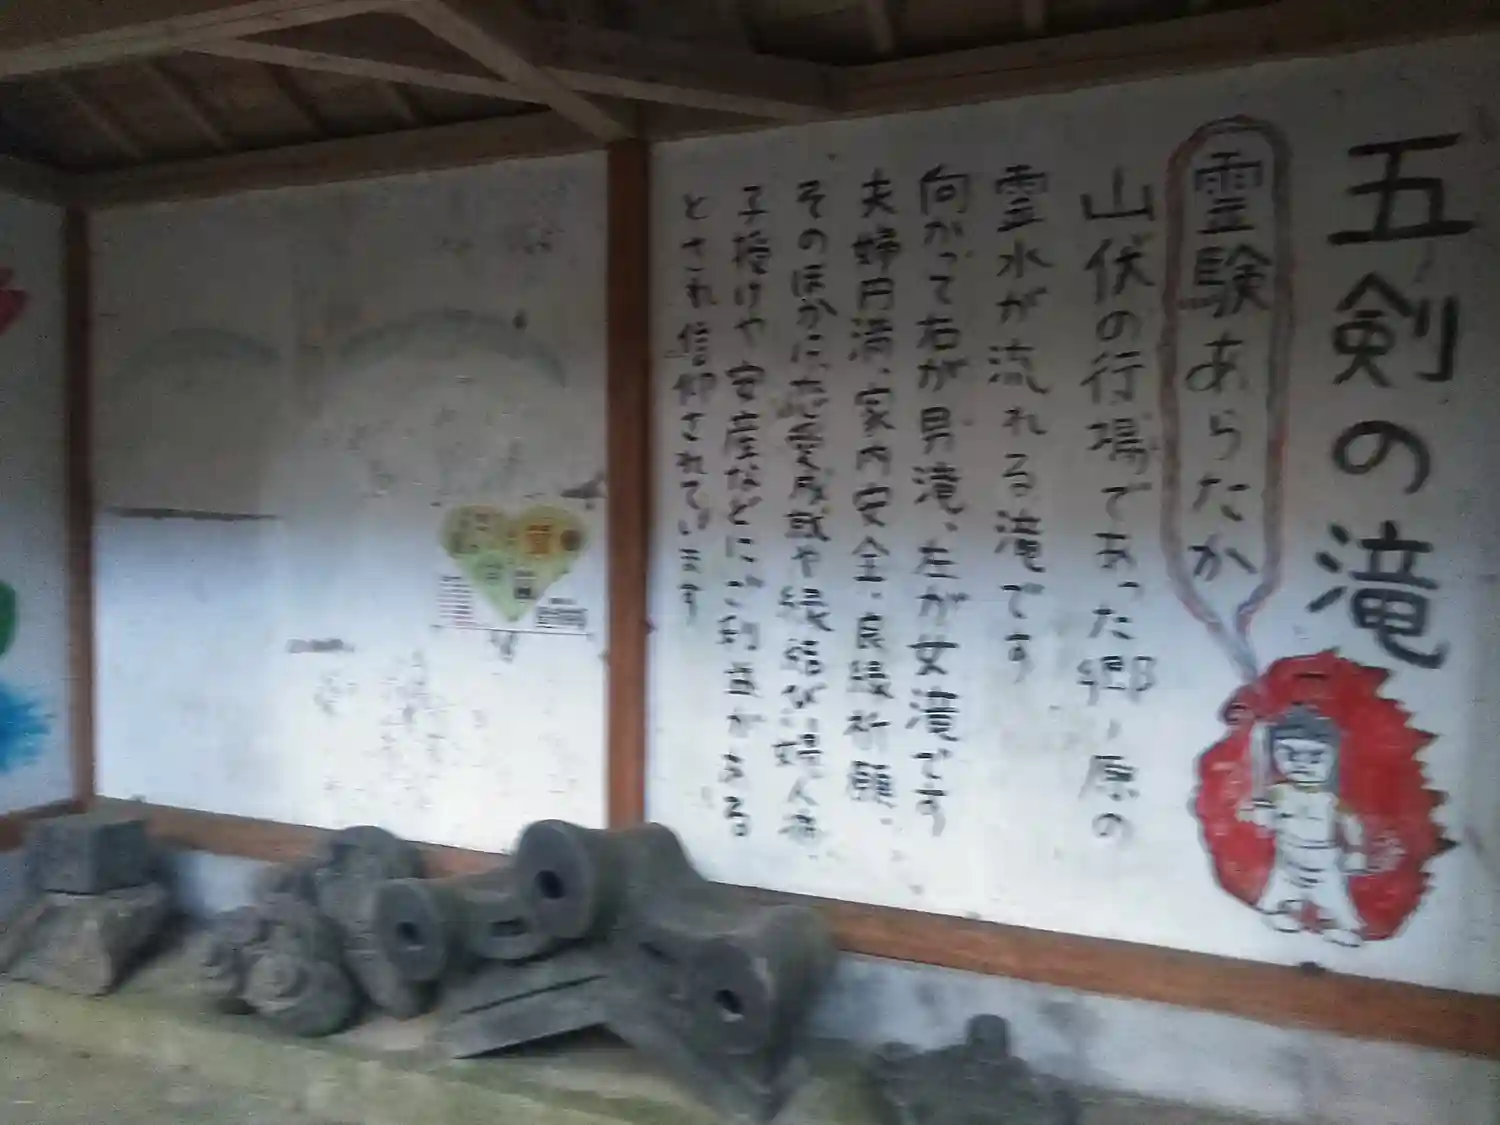 五剣の滝
霊験あらたか
山伏の行場であった郷ノ原の
霊水が流れる滝です
向かって右が男滝、左が女滝です
夫婦円満、家内安全、良縁祈願、
そのほかに、恋愛成就や縁結び、婦人病、
子授けや安産などにご利益がある
とされ信仰されています